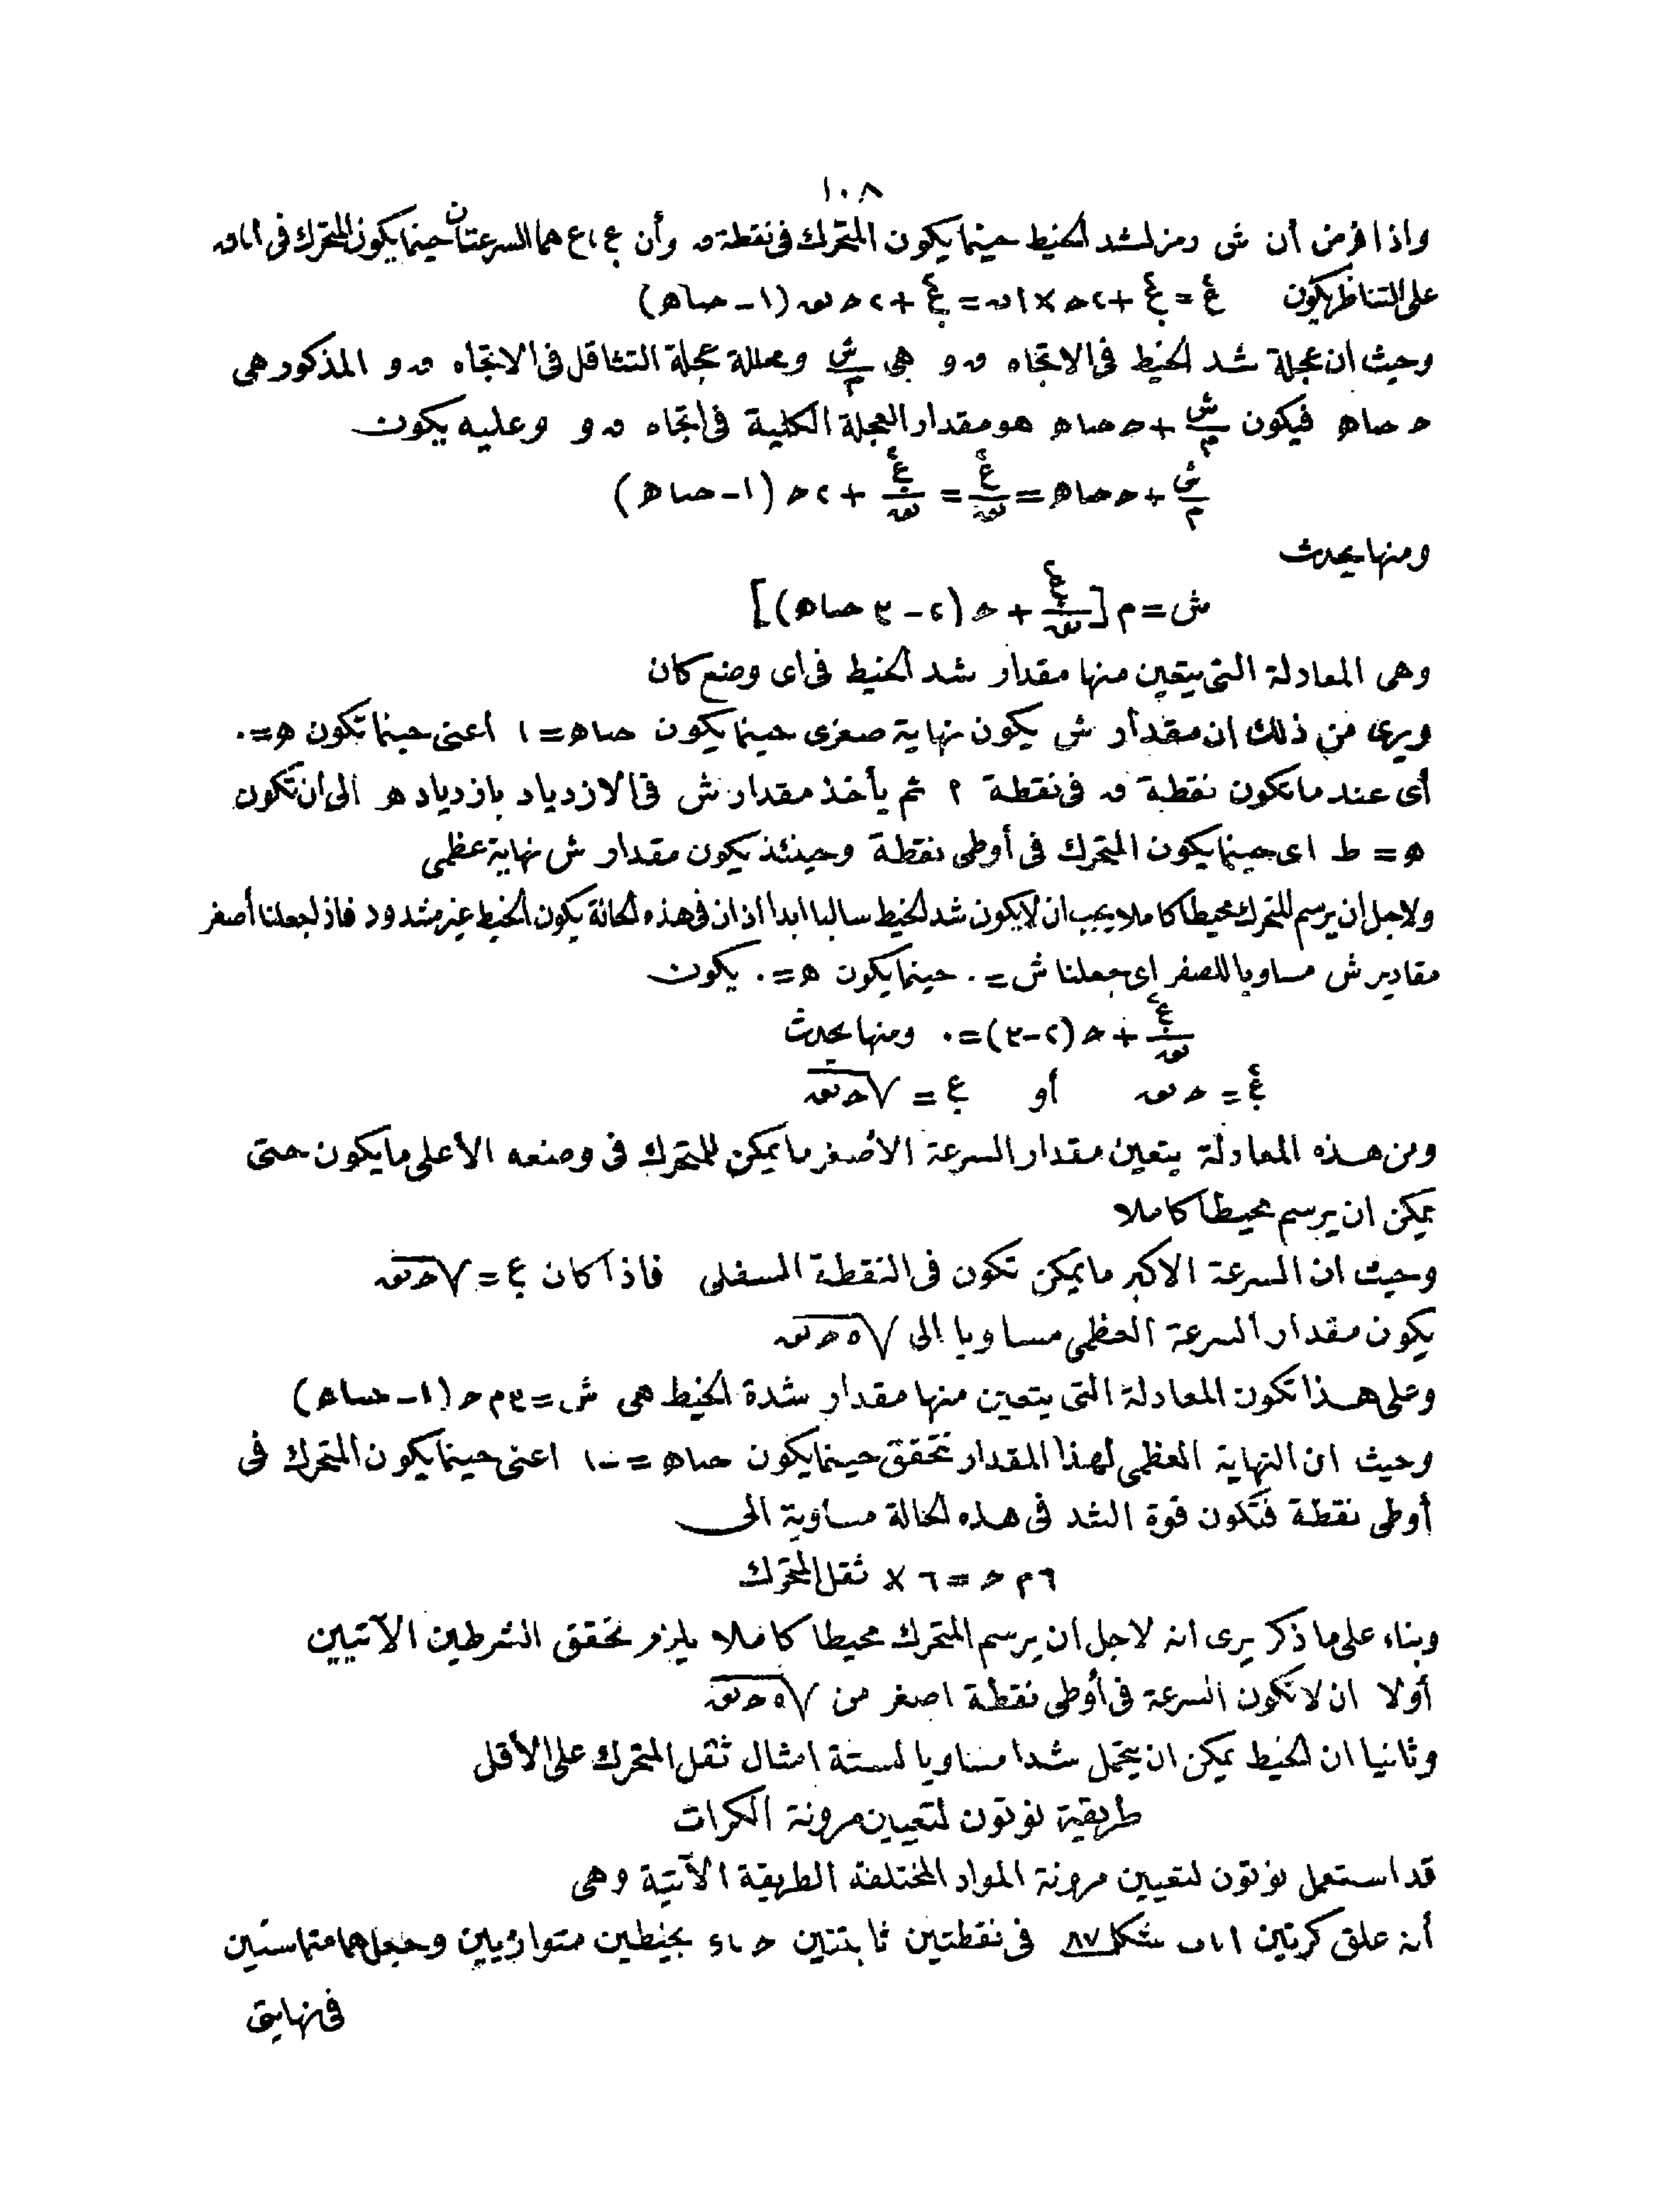 ١٠٨
واذا فرض أن ش رمز لشد الخيط حينما يكون المتحرك فى نقطة ٯ وأن ع٫ ، ع هما السرعتان حينما يكون المتحرك فى ا ، ٯ
على التناظر يكون ع٢ = ع٫٢ + ٢ حـ × ا ں = ع٫٢ + ٢ حـ نق (١ - حتا هـ)
وحيث ان عجلة شد الخيط فى الاتجاه ٯ و هى ش/م ومحللة عجلة التثاقل فى الاتجاه ٯ و المذكور هى
حـ حتا هـ فيكون ش/م + حـ حتا هـ هو مقدار العجلة الكلية فى اتجاه ٯ و وعليه يكون
ش/م + حـ حتا هـ = ع٢/نق = ع٫٢/نق + ٢ حـ (١ - حتا هـ)
ومنها يحدث
ش = م [ع٫٢/نق + حـ (٢ - ٣ حتا هـ)]
وهى المعادلة التى يتعين منها مقدار شد الخيط فى اى وضع كان
ويرى من ذلك ان مقدار ش يكون نهاية صغرى حينما يكون حتا هـ = ١ أعنى حينما تكون هـ = ٠
أى عند ما تكون نقطة ٯ فى نقطة ا ثم يأخذ مقدار ش فى الازدياد بازدياد هـ الى ان تكون
هـ = ط اى حينما يكون المتحرك فى أوطى نقطة وحينئذ يكون مقدار ش نهاية عظمى
ولاجل ان يرسم المتحرك محيطا كاملا يجب ان لا يكون شد الخيط سالبا ابدا اذ ان فى هذه الحالة يكون الخيط غير مشدود فاذا جعلنا أصغر
مقادير ش مساويا للصفر اى جعلنا ش = ٠ حينما يكون هـ = ٠ يكون
ع٫٢/نق + حـ (٢ - ٣) = ٠ ومنها يحدث
ع٫٢ = حـ نق أو ع٫ = √حـ نق
ومن هذه المعادلة يتعين مقدار السرعة الأصغر ما يمكن للمتحرك فى وضعه الأعلى ما يكون حتى
يمكن ان يرسم محيطا كاملا
وحيث ان السرعة الاكبر ما يمكن تكون فى النقطة السفلى فاذا كان ع٫ = √حـ نق
يكون مقدار السرعة العظمى مساويا الى √٥ حـ نق
وعلى هذا تكون المعادلة التى يتعين منها مقدار شدة الخيط هى ش = ٣ م حـ (١ - حتا هـ)
وحيث ان النهاية العظمى لهذا المقدار تتحقق حينما يكون حتا هـ = -١ اعنى حينما يكون المتحرك فى
أوطى نقطة فتكون قوة الشد فى هذه الحالة مساوية الى
٦ م حـ = ٦ × ثقل المتحرك
وبناء على ما ذكر يرى انه لاجل ان يرسم المتحرك محيطا كاملا يلزم تحقق الشرطين الآتيين
أولا ان لا تكون السرعة فى أوطى نقطة اصغر من √٥ حـ نق
وثانيا ان الخيط يمكن ان يتحمل شدا مساويا لستة امثال ثقل المتحرك على الأقل
طريقة نوتون لتعيين مرونة الكرات
قد استعمل نوتون لتعيين مرونة المواد المختلفة الطريقة الآتية وهى
أنه علق كرتين ا ، ب شكل ٨٧ فى نقطتين ثابتتين حـ ، ء بخيطين متوازيين وجعلهما متماستين
فى نهايتى